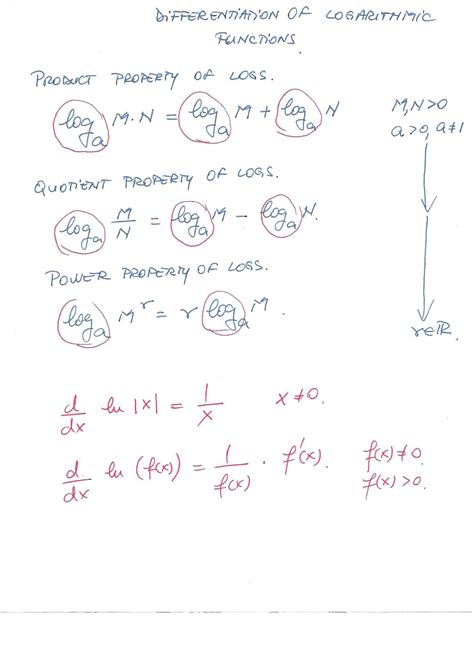 DIFFERENTIATION OF LOGARITHMIC
FUNCTIONS.
PRODUCT PROPERTY OF LOGS.
logₐ M·N = logₐ M + logₐ N
M,N>0
a>0, a≠1
QUOTIENT PROPERTY OF LOGS.
logₐ M/N = logₐ M − logₐ N.
POWER PROPERTY OF LOGS.
logₐ Mʳ = r logₐ M.
r∈ℝ.
d/dx ln |x| = 1/x x≠0.
d/dx ln (f(x)) = 1/f(x) · f'(x). f(x)≠0.
f(x)>0.